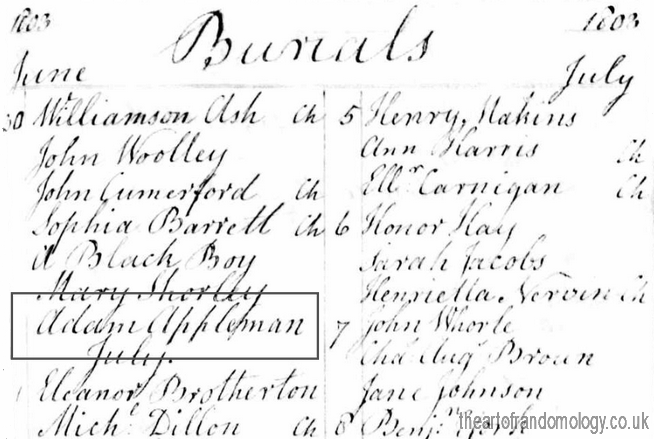 1803
Burials
1803
June
30 Willm.son Ash Ch
John Woolley
John Cumerford Ch
Sophia Barrett Ch
A Black Boy
Mary Shorley
Adam Appleman
July.
1 Eleanor Brotherton
Michl. Dillon Ch
July
5 Henry Makins
Ann Harris Ch
Ellr. Carnigan Ch
6 Honor Hay
Sarah Jacobs
Henrietta Ch
7 John Whorle
Chas. Augs. Brown
Jane Johnson
8 Benjn. York
theartofrandomology.co.uk